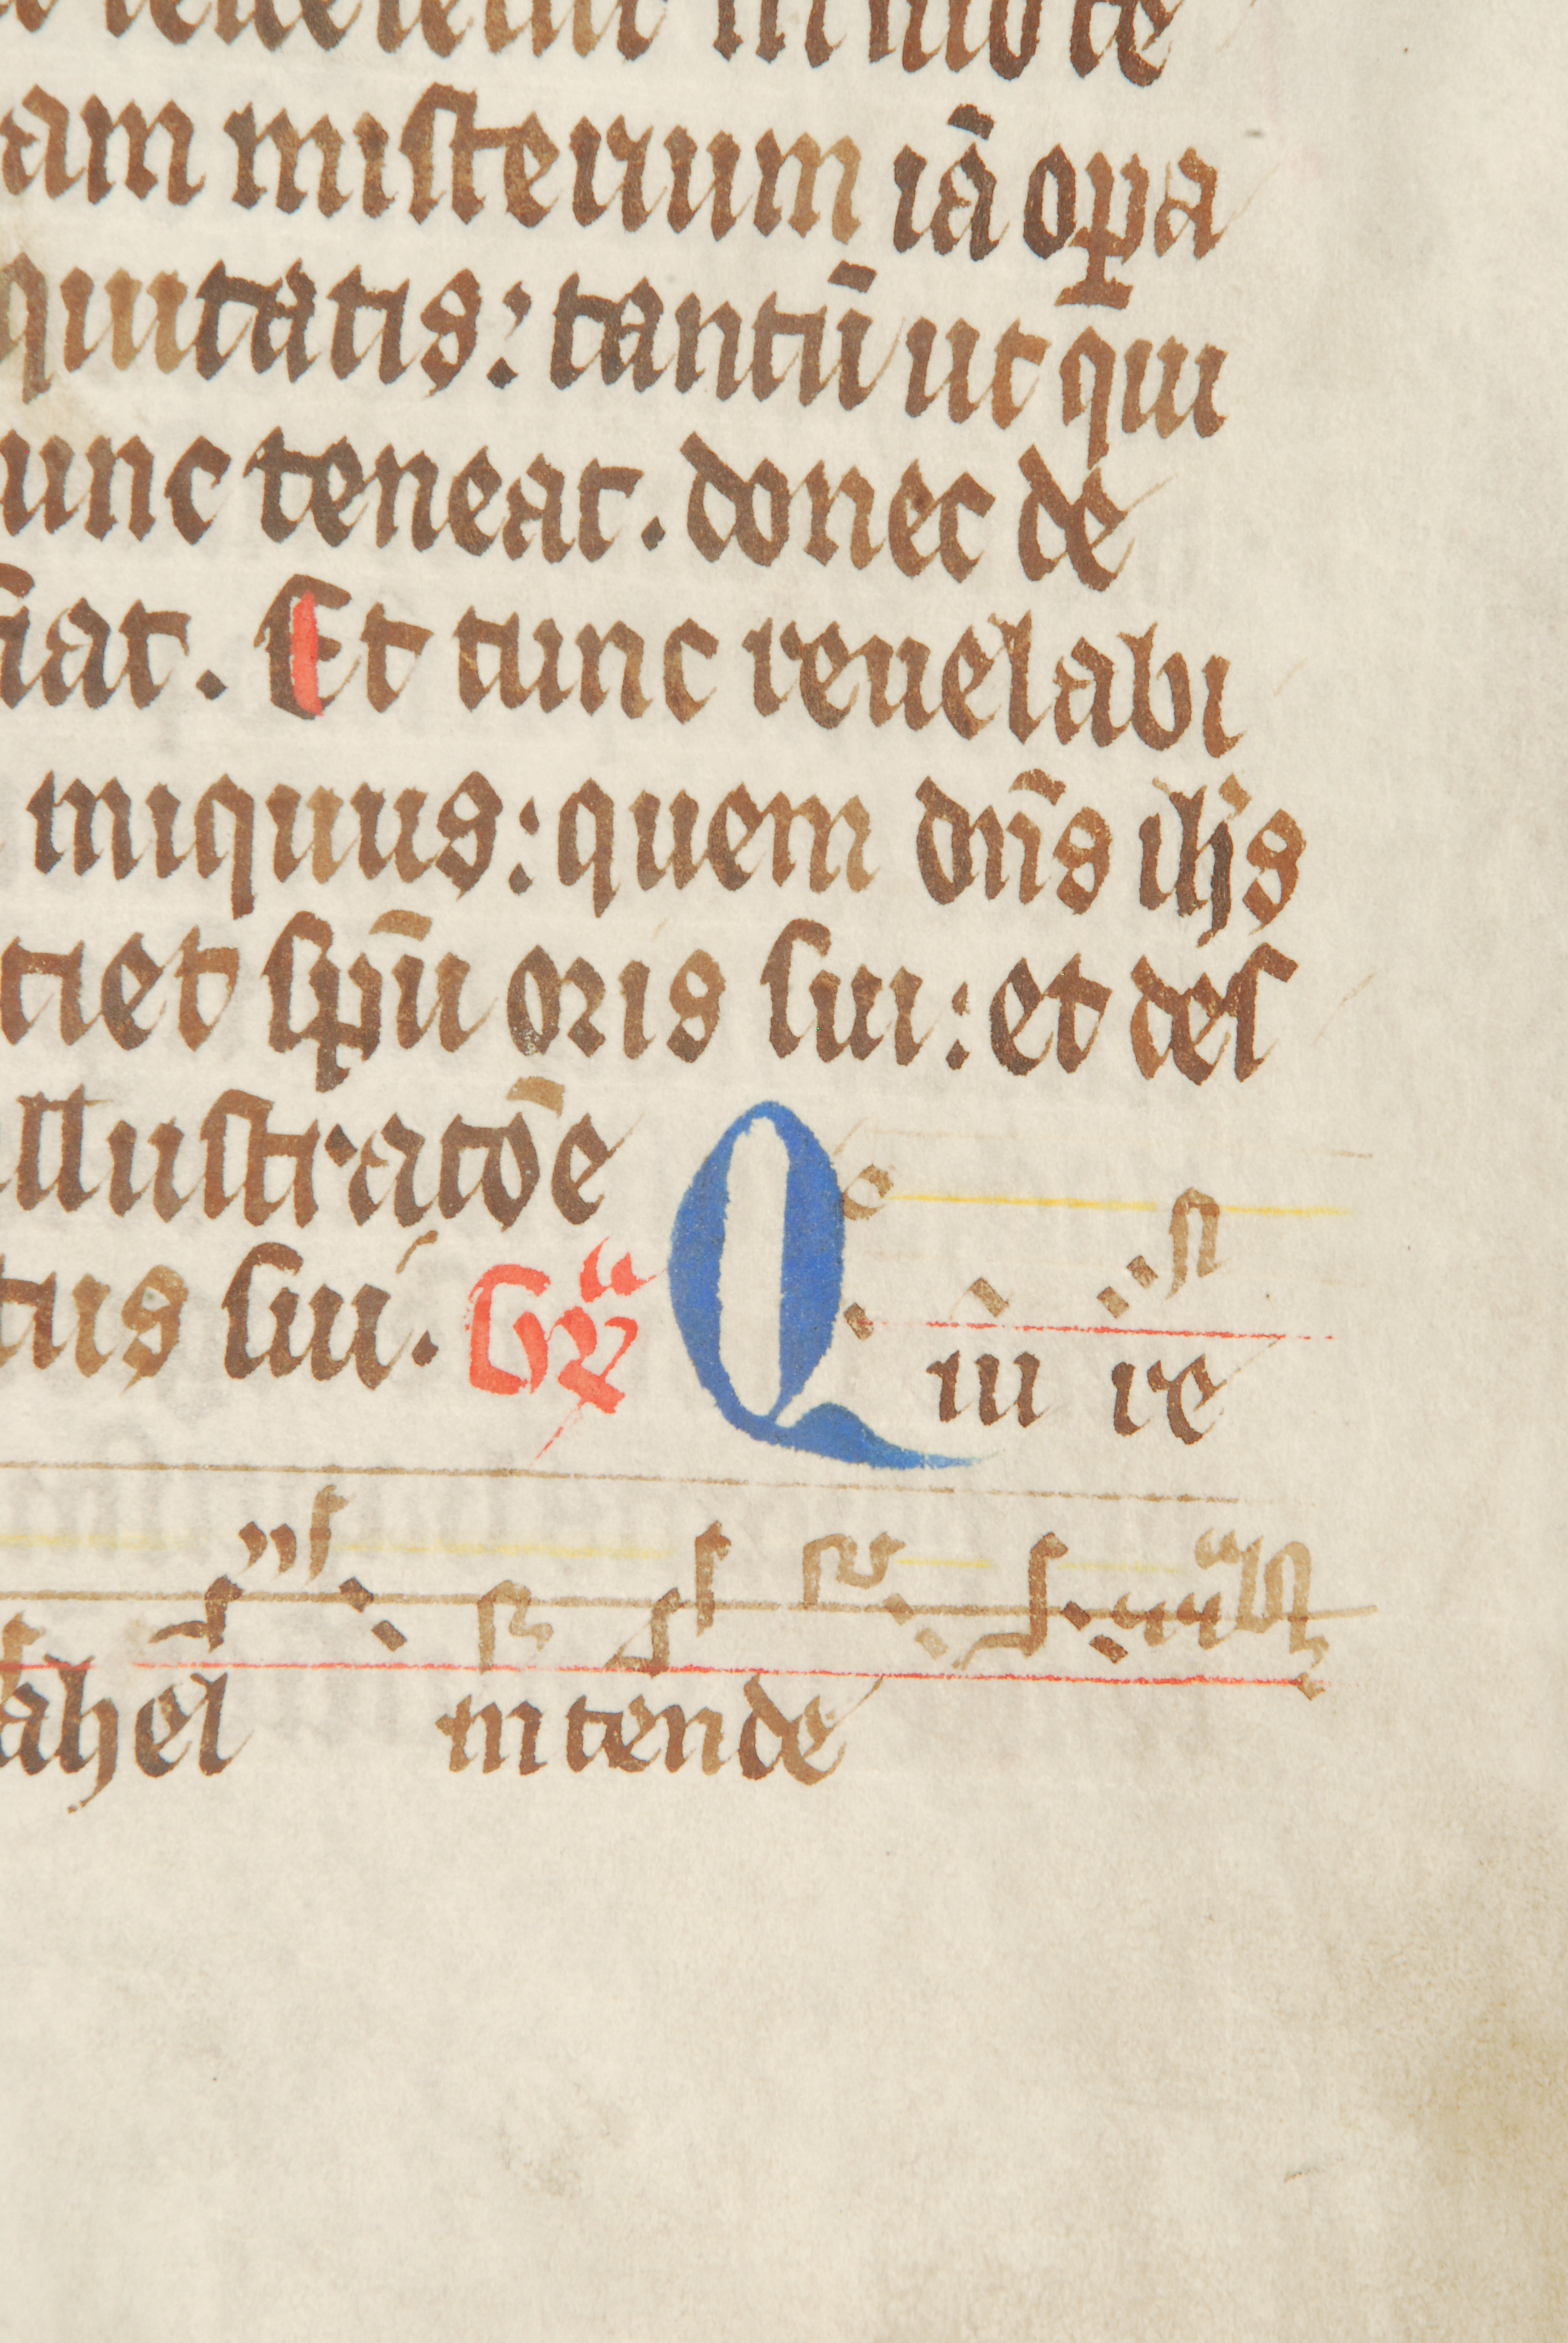 reueletur in suo te
am misterium iā opa
quitatis: tantū ut q̄ui
unc teneat. donec de
fiat. Et tunc reuelabi
iniquus: quem dn̄s ih̄s
ciet sp̄u oris sui: et des
illustratōe
tus sui. Gr̄a Qui re
rahel intende